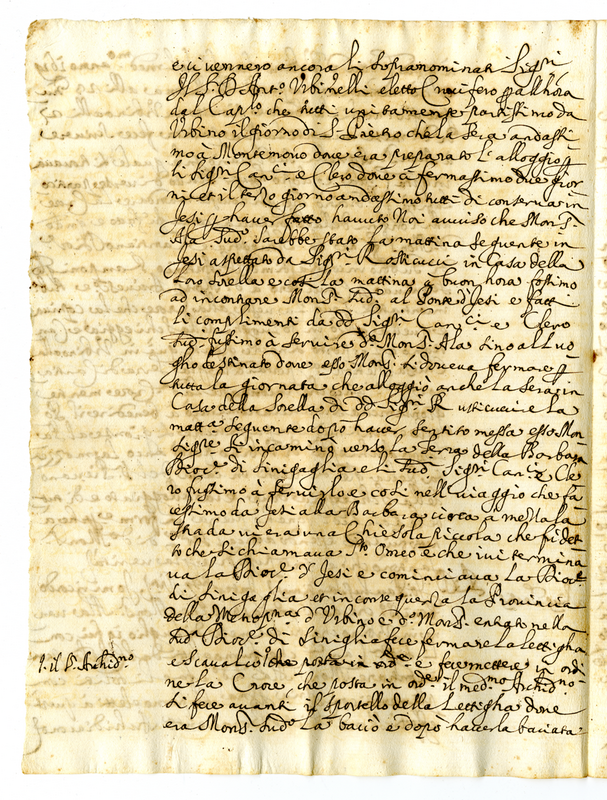 e ci vennero ancora li sopranominati Sig.ri
Il S.r D. Ant.o Urbinelli eletto Crucifero p all'hora
dal Cap.lo che tutti unitamente partissimo da
Urbino il giorno di S. Pietro che la sera andassi
mo à Montenovo dove era preparato l'alloggio p
li Sig.ri Can.ci e Clero dove ci fermassimo due gior
ni et il terzo giorno andassimo tutti di conserva in
Jesi p haver hauuto Noi auuiso che Mons.r
Ala Sud.o sarebbe stato la mattina seguente in
Jesi aspettato da Sig.ri Rusticucci in Casa della
loro sorella e così la mattina à buon hora fossimo
ad incontrare Mons.r Sud.o al Ponte di Jesi e fatti
li complimenti da dd. Sig.ri Can.ci e Clero
Sud.o fussimo à servire d.o Mons.r Ala sino al luo
gho destinato dove esso Mons.r si doveva fermare p
tutta la giornata che alloggiò anche la sera in
Casa della Sorella di dd. Sig.ri Rusticucci e la
matt.a seguente dopo haver sentito messa esso Mon
sig.re si incaminò verso la Terra della Barbara
Dioc.e di Sinigaglia e li Sud.i Sig.ri Can.ci e Cle
ro fussimo à servirlo e così nell viaggio che fa
cessimo da Jesi alla Barbara circa a mezza la
strada vi era una Chiesola piccola che fù det
to che si chiamava S.to Omeo e che ivi termina
va la Dioc.e d Jesi e cominciava la Dioc.e
di Sinigaglia et in conseguenza la Provincia
della Metrop.na d Urbino e d.o Mons.r entrato nella
Sud.a Dioc.e di Siniglia fece fermare la lettigha
e scavalcò che posta in ord.e e fece mettere in ordi
ne la Croce, che posta in ord.e il med.mo Archid.no
si fece avanti il sportello della Lettigha dove
era Mons.r Sud.o la baciò e dopò haverla baciata
1. il S.r Archid.no